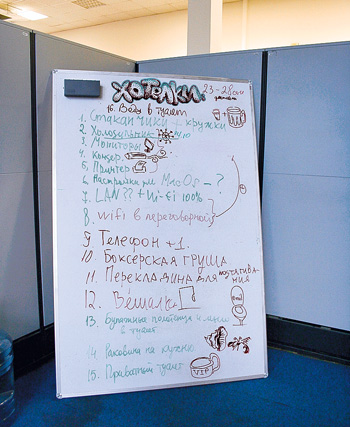 ХОТЕЛКИ 23-28 окт
16. Воду в туалет
1. Стаканчики + кружки
2. Холодильник
3. Мониторы
4. Кондер.
5. Принтер
6. Настройки для MacOs - ?
7. LAN?? + Wi-Fi 100%
8. wifi в переговорной
9 Телефон +1.
10. Боксерская груша
11. Перекладина для подтягивания
12. Вешалка
13. Бумажные полотенца и мыло в туалет
14. Раковина на кухню
15. Приватный туалет
VIP